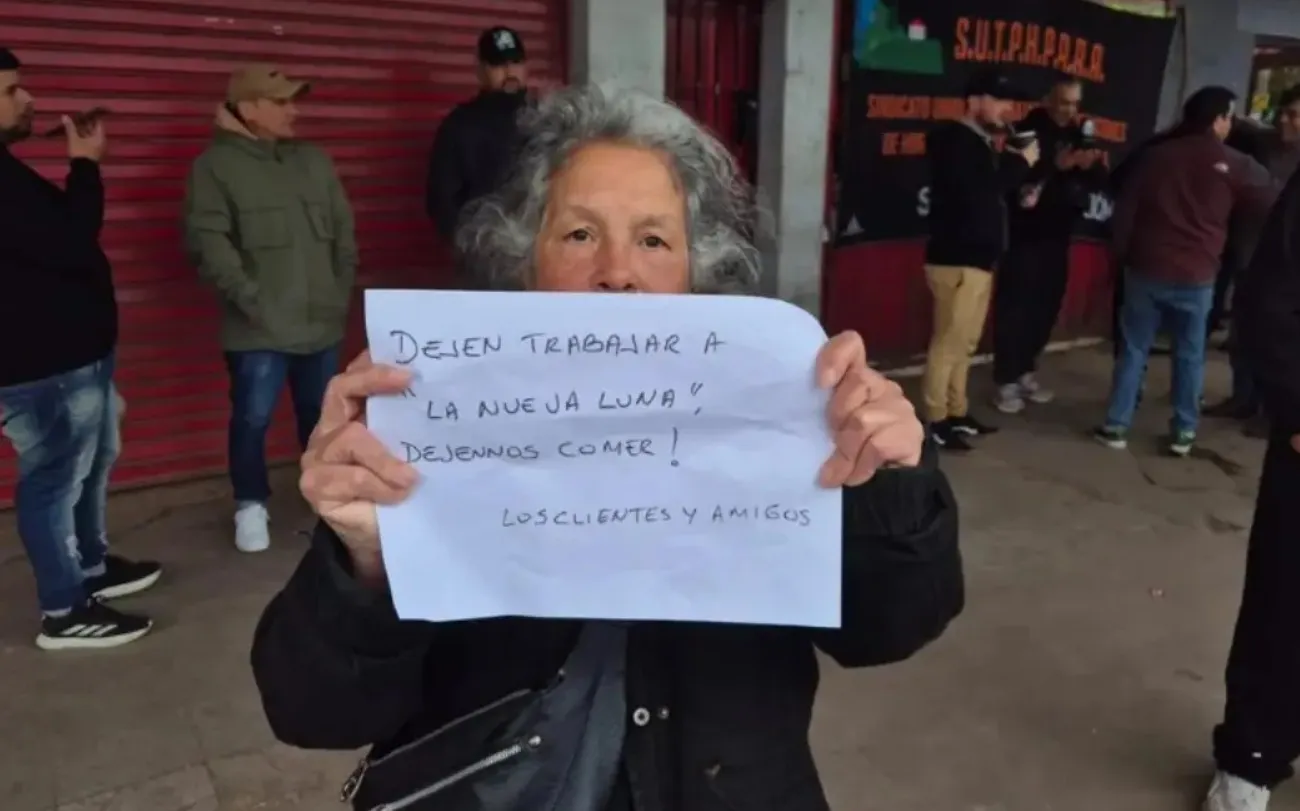 S.U.T.P.H.P.R.R.A.
SINDICATO
DEJEN TRABAJAR A
"LA NUEVA LUNA",
DEJENNOS COMER!
LOS CLIENTES Y AMIGOS